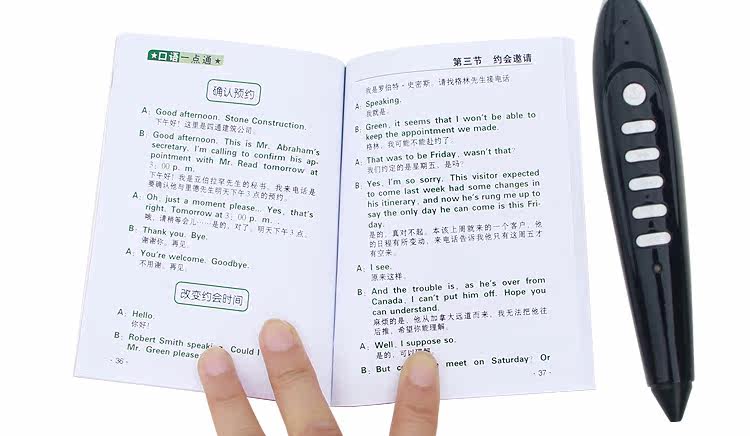 ★口语一点通★
确认预约
A: Good afternoon. Stone Construction.
下午好！这里是四通建筑公司。
B: Good afternoon. This is Mr. Abraham's
secretary. I'm calling to confirm his ap-
pointment with Mr. Read tomorrow at
3:00 p. m.
下午好！我是亚伯拉罕先生的秘书。我来电话是
要确认他与里德先生明天下午3点的预约。
A: Oh, just a moment please... Yes, that's
right. Tomorrow at 3:00 p. m..
哦，请稍等会儿……是的，对了，明天下午3点。
B: Thank you. Bye.
谢谢你。再见。
A: You're welcome. Goodbye.
不用谢。再见。
改变约会时间
A: Hello.
你好！
B: Robert Smith speaking. Could I
Mr. Green please
· 36 ·
第三节 约会邀请
我是罗伯特·史密斯。请找格林先生接电话。
A: Speaking.
我就是。
B: Green, it seems that I won't be able to
keep the appointment we made.
格林，我可能不能赴约了。
A: That was to be Friday, wasn't that?
我们约定的是星期五，是吗？
B: Yes, I'm so sorry. This visitor expected
to come last week had some changes in
his itinerary, and now he's rung me up to
say the only day he can come is this Fri-
day.
是的，真对不起。本该上周就来的一个客户，他
的日程有所变动，来电话告诉我他只有这周五才
有空来。
A: I see.
原来这样。
B: And the trouble is, as he's over from
Canada, I can't put him off. Hope you
can understand.
麻烦的是，他从加拿大远道而来，我无法把他往
后推，希望你能理解。
A: Well, I suppose so.
是的，可以理解。
B: But meet on Saturday? Or
· 37 ·